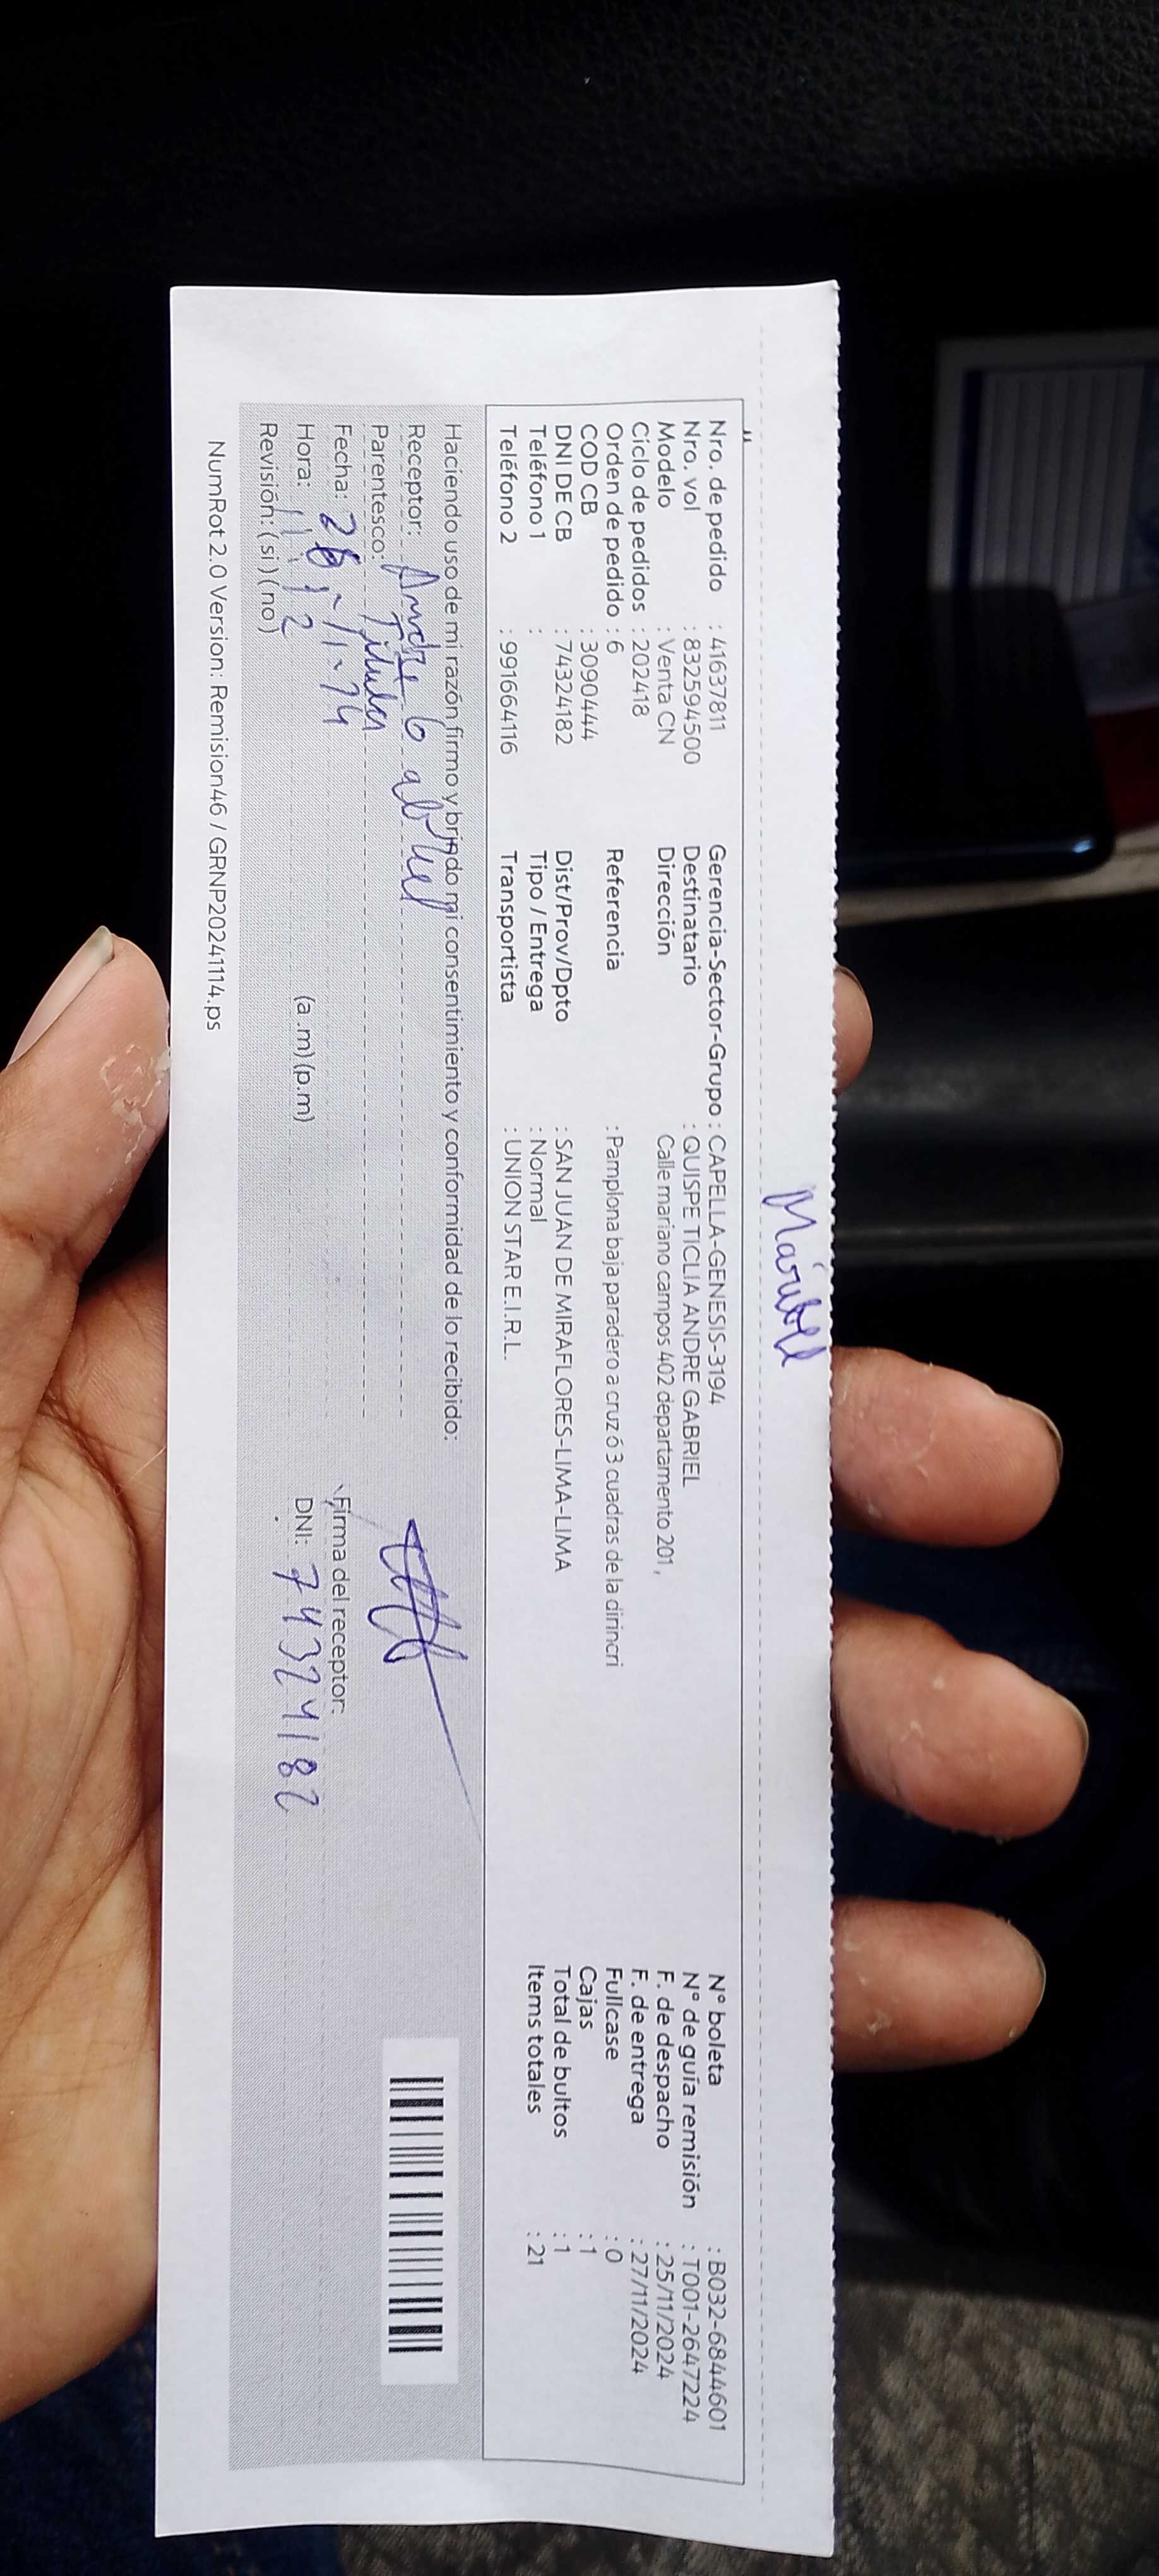 Maribel
Nro. de pedido : 41637811 Gerencia-Sector-Grupo : CAPELLA-GENESIS-3194 N° boleta : B032-6844601
Nro. vol : 832594500 Destinatario : QUISPE TICLIA ANDRE GABRIEL N° de guía remisión : T001-2647224
Modelo : Venta CN Dirección Calle mariano campos 402 departamento 201 , F. de despacho : 25/11/2024
Ciclo de pedidos : 202418 F. de entrega : 27/11/2024
Orden de pedido : 6 Referencia : Pamplona baja paradero a cruz ó 3 cuadras de la dirincri Fullcase : 0
COD CB : 3090444 Cajas : 1
DNI DE CB : 74324182 Dist/Prov/Dpto : SAN JUAN DE MIRAFLORES-LIMA-LIMA Total de bultos : 1
Teléfono 1 : Tipo / Entrega : Normal Items totales : 21
Teléfono 2 : 991664116 Transportista : UNION STAR E.I.R.L.
Haciendo uso de mi razón firmo y brindo mi consentimiento y conformidad de lo recibido:
Receptor: Andre
Parentesco: Titular
Fecha:
Firma del receptor:
Hora: 11:12 (a .m) (p.m) DNI: 74324182
Revisión: ( si ) ( no )
NumRot 2.0 Version: Remision46 / GRNP20241114.ps